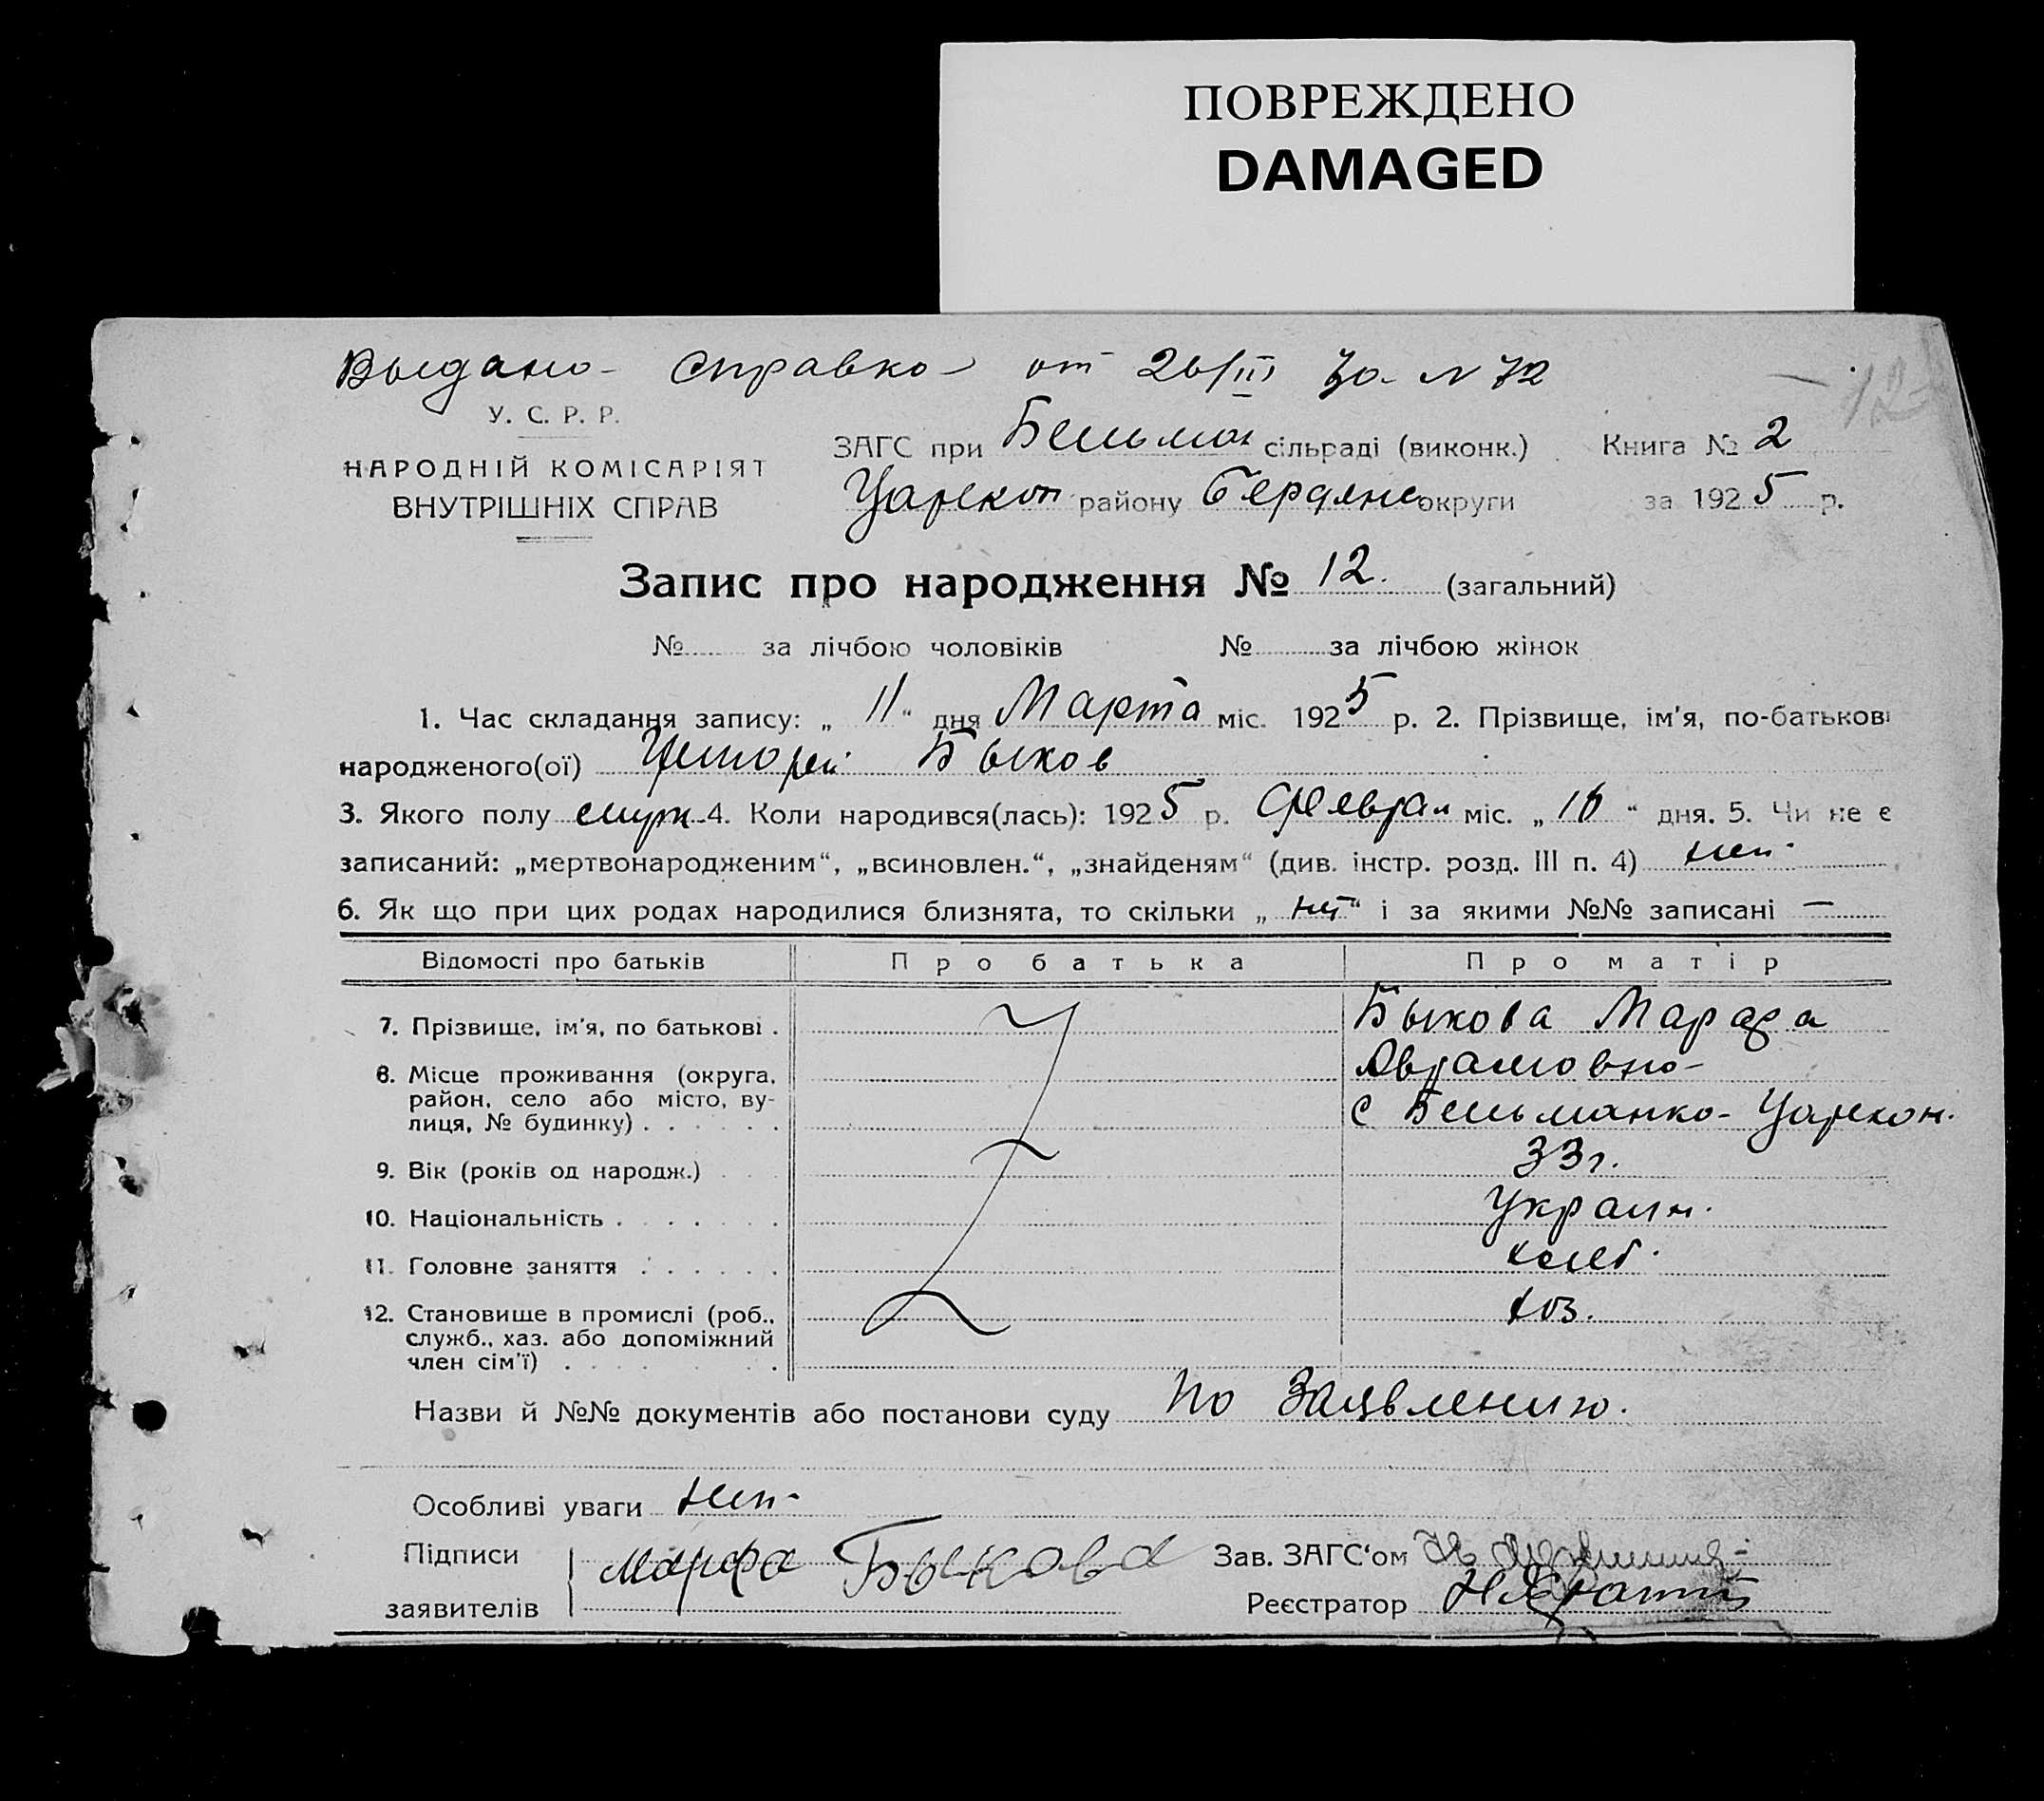 ПОВРЕЖДЕНО
DAMAGED
Выдано справка от 26/III 70 N 72
12
У. С. Р. Р.
НАРОДНІЙ КОМІСАРІЯТ
ВНУТРІШНІХ СПРАВ
ЗАГС при Бельман сільраді (виконк.) Книга № 2
Царекон району Бердянс округи за 1925 р.
Запис про народження № 12. (загальний)
№ за лічбою чоловіків № за лічбою жінок
1. Час складання запису: „ 11 “ дня Марта міс. 1925 р. 2. Прізвище, ім'я, по-батькові
народженого(ої) Быков
3. Якого полу муж 4. Коли народився(лась): 1925 р. Феврал міс. „ “ дня. 5. Чи не є
записаний: „мертвонародженим“, „всиновлен.“, „знайденям“ (див. інстр. розд. III п. 4) нет
6. Як що при цих родах народилися близнята, то скільки „ нет “ і за якими №№ записані —
Відомості про батьків Про батька Про матір
7. Прізвище, ім'я, по батькові . Быкова Марфа
Аврамовна
8. Місце проживання (округа,
район, село або місто, ву-
лиця, № будинку) . . . . . . с Бельманка Царекон.
9. Вік (років од народж.) 33 г.
10. Національність . . . . . . . Украин.
11. Головне заняття . . . . . . хлеб.
12. Становище в промислі (роб.,
служб., хаз. або допоміжний
член сім'ї) . хоз.
Назви й №№ документів або постанови суду по Заявлению.
Особливі уваги нет
Підписи
заявителів
Марфа Быкова
Зав. ЗАГС'ом
Реєстратор